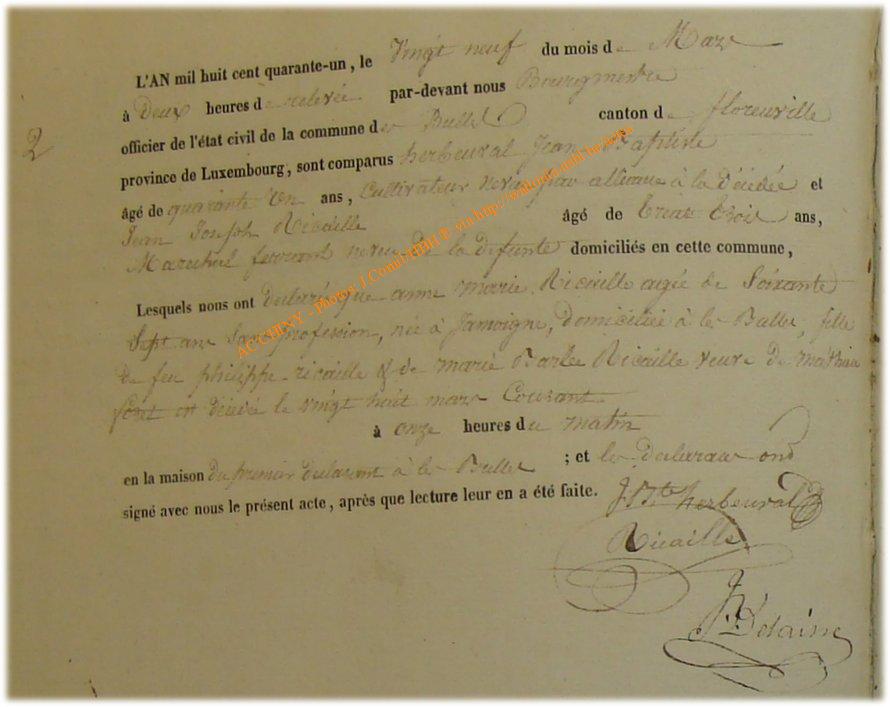 L'AN mil huit cent quarante-un, le Vingt neuf du mois de Mars
à Deux heures de relevée par-devant nous Bourgmestre
2
officier de l'état civil de la commune des Bulles canton de florenville
province de Luxembourg, sont comparus herbeuval Jean Baptiste
âgé de quarante Un ans, Cultivateur neveu par alliance à la Décédée et
Jean Joseph Ricaille âgé de trente trois ans,
Marechal ferrant neveu de la défunte domiciliés en cette commune,
Lesquels nous ont declaré que anne marie Ricaille agée de Soixante
Sept ans Sans profession, née à Jamoigne, Domiciliée à les Bulles, fille
de feu philippe ricaille & de marie Barbe Ricaille veuve de mathieu
est décédée le vingt huit mars Courant
à onze heures du matin
en la maison du premier declarant à les Bulles ; et les declarans ont
signé avec nous le présent acte, après que lecture leur en a été faite.
J. Bte herbeuval
Ricaille
ACCHINY - Photos J via http://